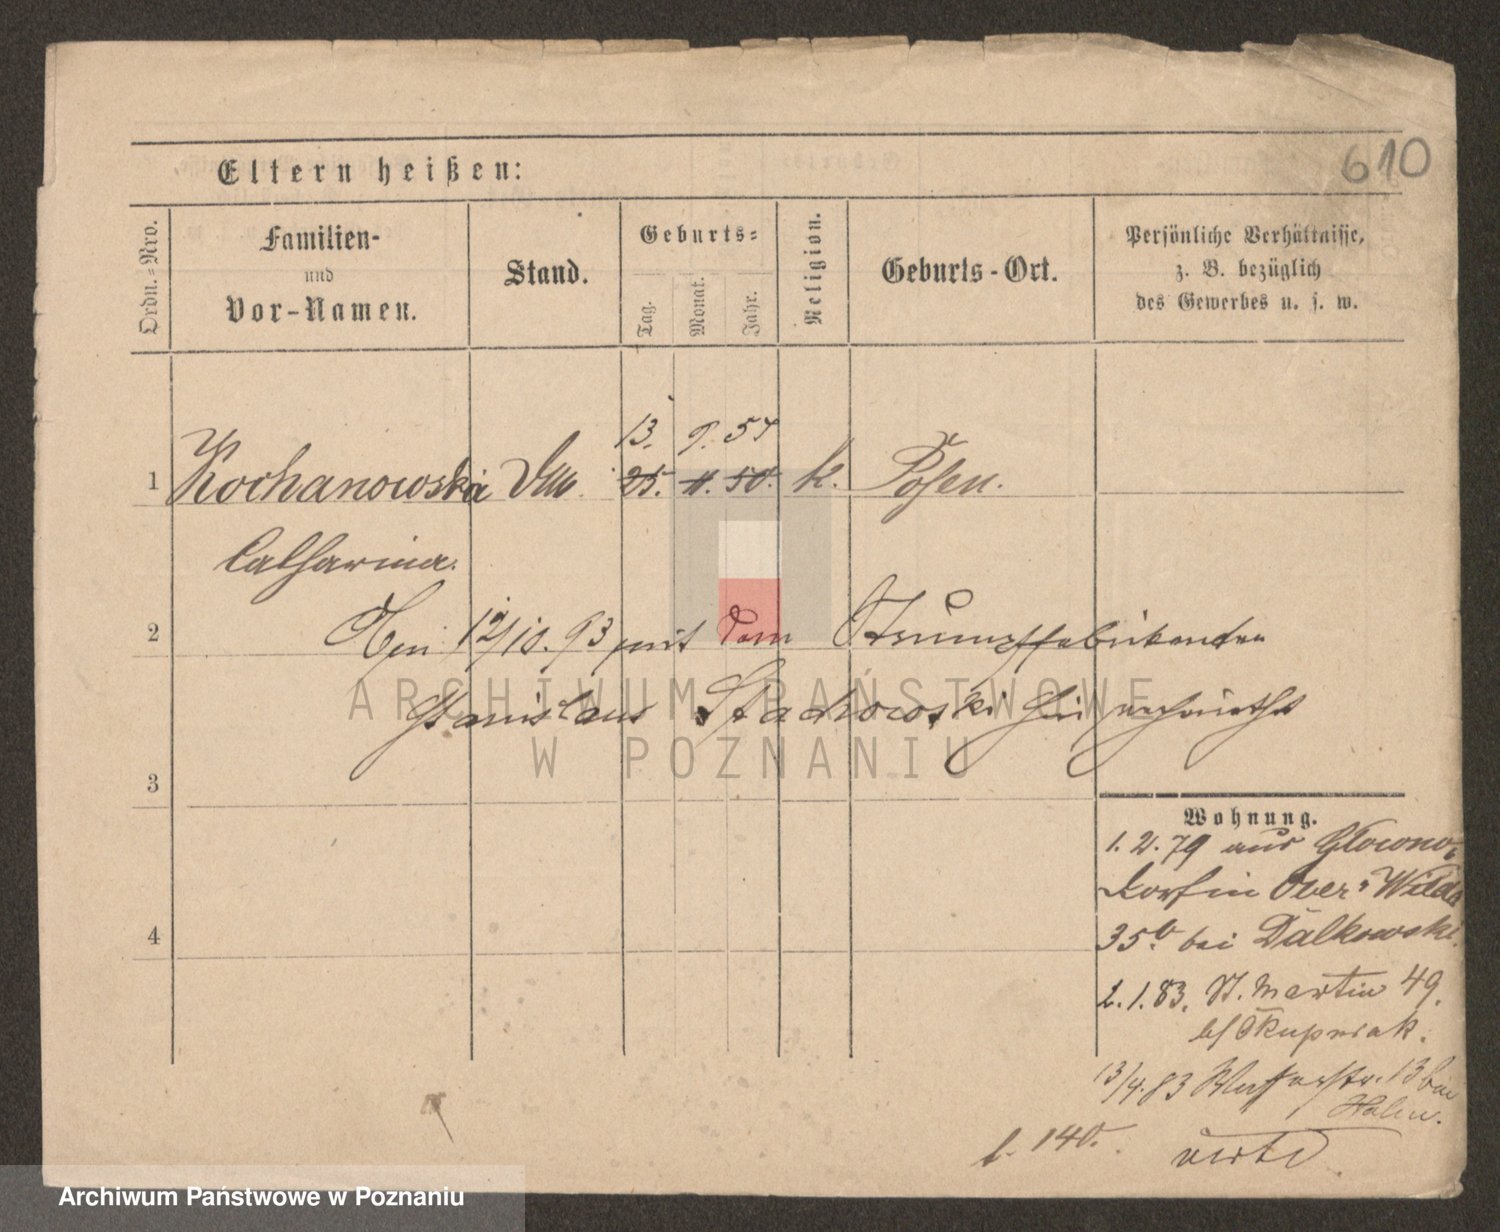 610
Eltern heißen:
Ordn.-Nro.
Familien-
und
Vor-Namen.
Stand.
Geburts-
Tag.
Monat.
Jahr.
Religion.
Geburts-Ort.
Persönliche Verhältnisse,
z. B. bezüglich
des Gewerbes u. s. w.
13. 9. 57
1 Kochanowska 25. 11. 50. k. Posen.
Catharina.
2 12/10. 93 mit dem Strumpffabrikanten
Stanislaus Stachowski hier verheirathet
3
Wohnung.
1. 2. 79 aus Glowono-
dorf in Ober-Wilda
35b. bei Dalkowski.
4
2. 1. 83. St. Martin 49.
b/ Skupniak.
13/4. 83 Wasserstr. 13 bei
l. 140. verte
ARCHIWUM PAŃSTWOWE
W POZNANIU
Archiwum Państwowe w Poznaniu